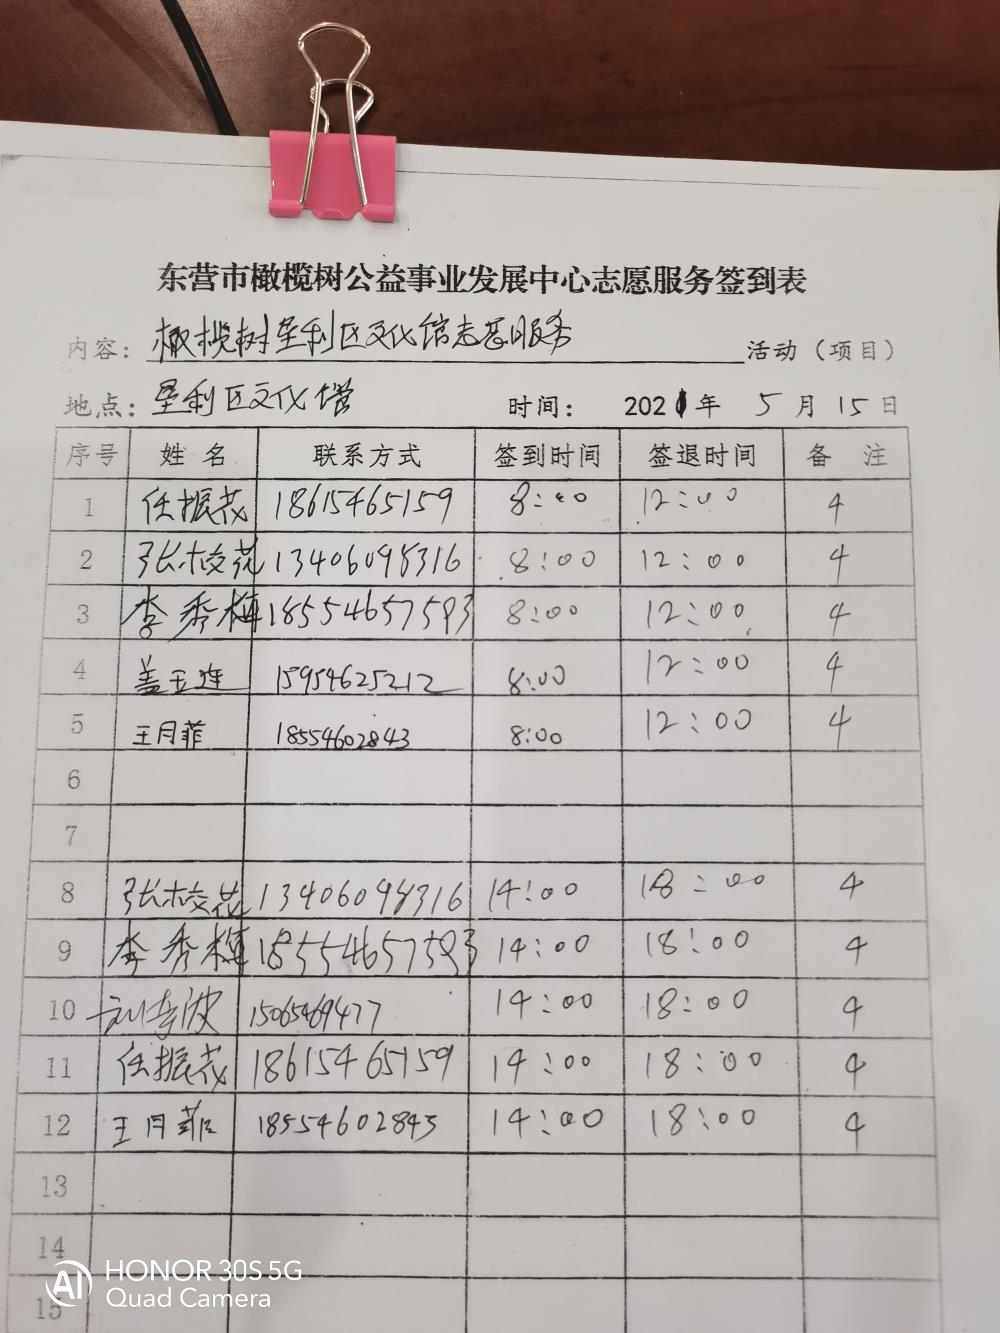 东营市橄榄树公益事业发展中心志愿服务签到表
内容：橄榄树垦利区文化馆志愿服务 活动（项目）
地点：垦利区文化馆 时间：2021年 5月15日
序号 姓名 联系方式 签到时间 签退时间 备注
1 任振茂 18615465159 8:00 12:00 4
2 张校花 13406098316 8:00 12:00 4
3 李秀梅 18554657593 8:00 12:00 4
4 盖玉莲 15954625212 8:00 12:00 4
5 王月菲 18554602843 8:00 12:00 4
6
7
8 张校花 13406098316 14:00 18:00 4
9 李秀梅 18554657593 14:00 18:00 4
10 刘波 15065469477 14:00 18:00 4
11 任振茂 18615465159 14:00 18:00 4
12 王月菲 18554602843 14:00 18:00 4
13
14
15
AI HONOR 30S 5G
Quad Camera